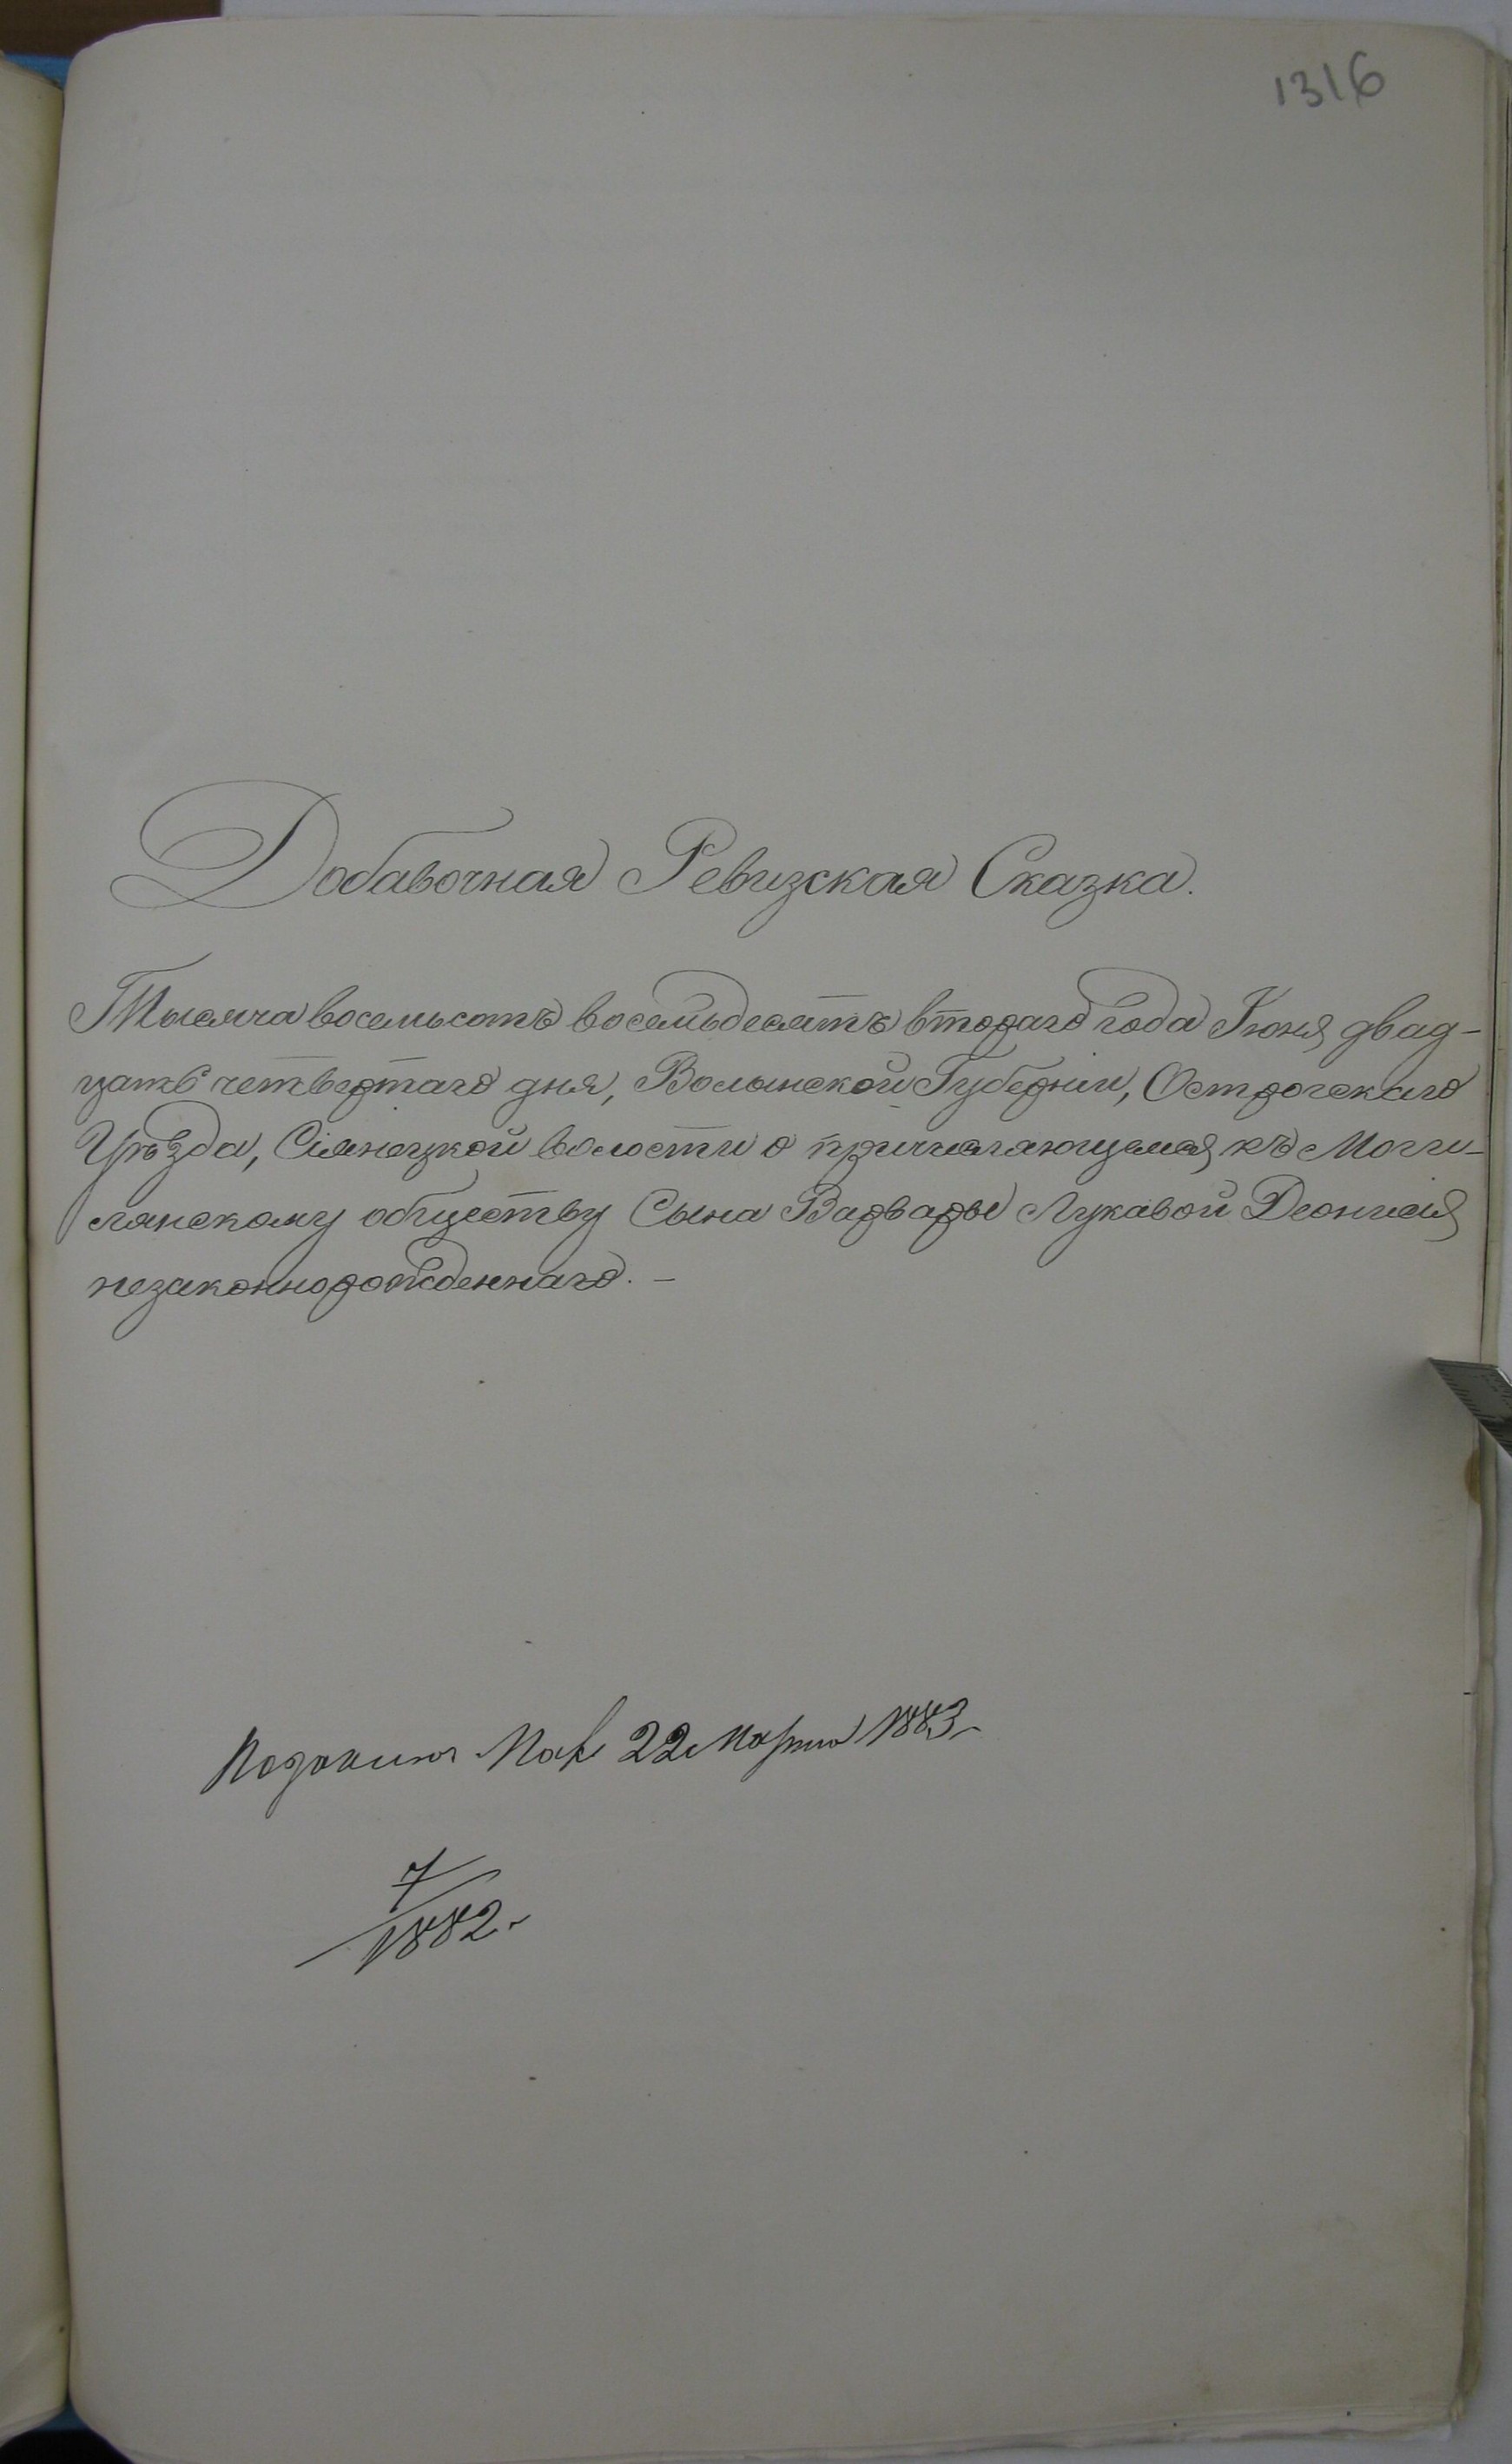 1316
Добавочная Ревизская Сказка.
Тысяча восемьсотъ восемьдесятъ втораго года Іюня двад-
цать четвертаго дня, Волынской Губерніи, Острогскаго
Уѣзда, Сіянецкой волости о причисляющемся къ Моги-
лянскому обществу Сына Варвары Лукавой Деонисія
незаконнорожденнаго. –
22 Марта 1883
7
1882.